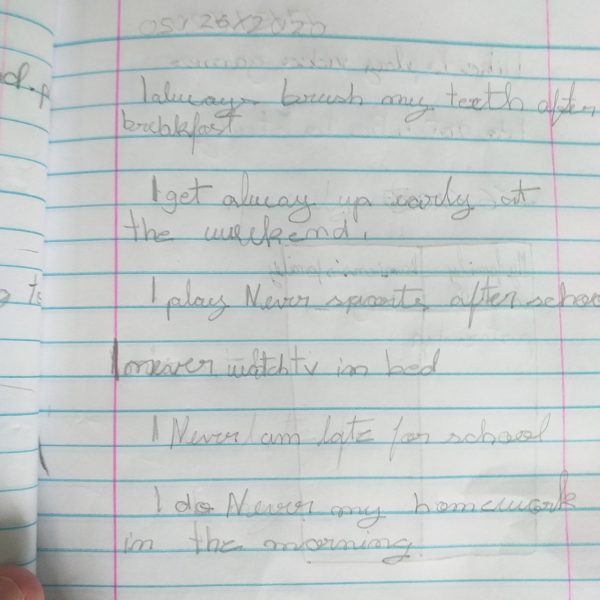 05/26/2020
I always brush my teeth after
breakfast
I get alway up early at
the weekend.
I play Never sports after schoo
I never watch tv in bed
I Never am late for school
I do Never my homework
in the morning